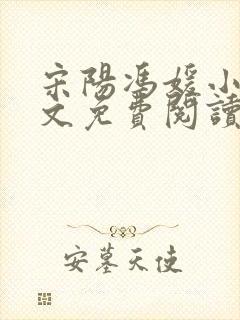 宋陽馮媛小
文免費閱讀
安墓天使